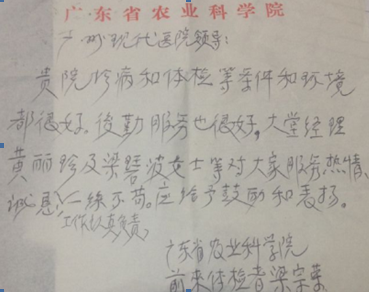 广东省农业科学院
广州现代医院领导：
贵院诊病和体检等条件和环境
都很好。后勤服务也很好，大堂经理
黄丽珍及梁碧波女士等对大家服务热情、
诚恳，一丝不苟。应给予鼓励和表扬。
工作认真负责，
广东省农业科学院
前来体检者梁宗